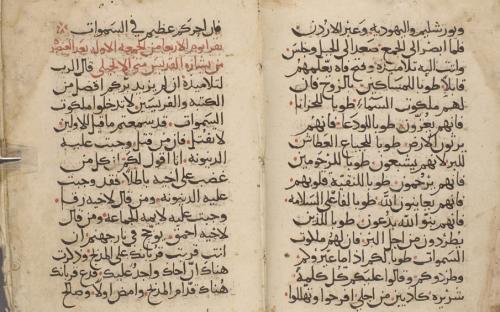 ويورشليم واليهوديه وعبر الاردن
فلما ابصر الي الجمع صعد الي الجبل وجلس
واتت اليه تلاميذه وفتح فاه يعلمهم
قايلا طوبا للمساكين بالروح فان
لهم ملكوت السماء طوبا للحزانا
فانهم يعزون طوبا للودعا فانهم
يرثون الارض طوبا للجياع العطاش
للبر لانهم يشبعون طوبا للرحومين
فانهم يرحمون طوبا للنقيه قلوبهم
فانهم يعاينون الله طوبا لفاعلي السلامه
فانهم بنو الله يدعون طوبا للذين
يطردون من اجل البر فان لهم ملكوت
السموات طوبا لكم اذا ما عيروكم
وطردوكم وقالوا عليكم كل كلمه
شريره كاذبين من اجلي افرحوا وتهللوا
فان اجركم عظيم في السموات
يقرا يوم الاربعا من الجمعه الاوله بعد العنصره
من بشاره القديس متي الانجيلي قال الرب
لتلاميذه ان لم يزيد بركم افضل من
الكتبه والفريسيين لا تدخلوا ملكوت
السموات قد سمعتم ما قيل للاولين
لا تقتل فان من قتل وجبت عليه
الدينونه انا اقول لكم ان كل من
غضب علي اخيه باطلا فقد وجبت
عليه الدينونه ومن قال لاخيه رقا
وجبت عليه لايمه الجماعه ومن قال
لاخيه احمق يوجب في نار جهنم ان
انت قربت قربانك علي المذبح وذكرت
هناك ان اخاك واجد عليك فدع قربانك
هناك قدام المذبح وامض اولا وصالح